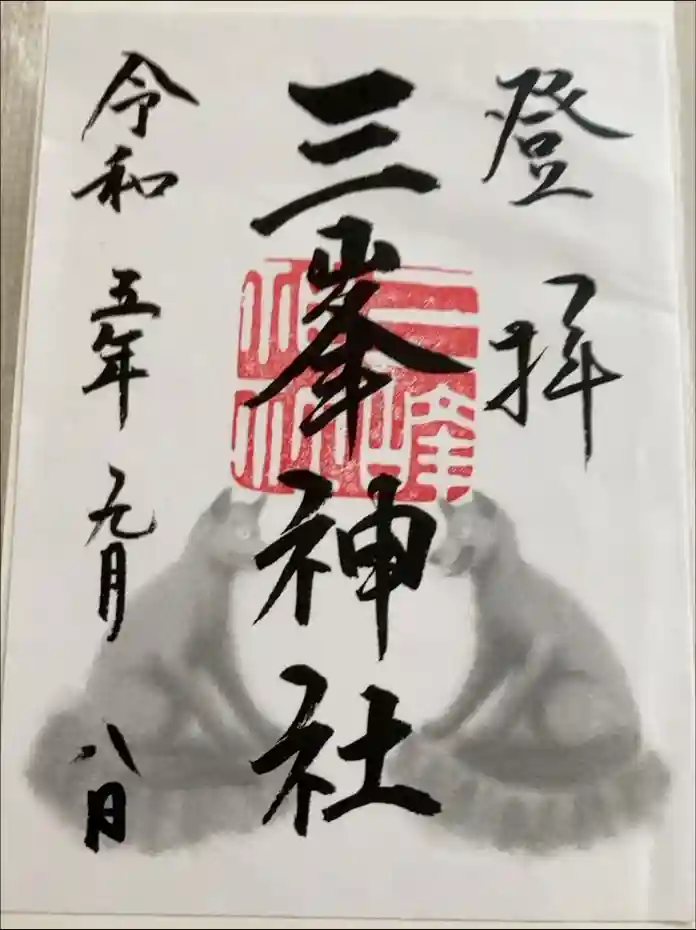 登拝
三峯神社
三峰神社
令和五年九月八日